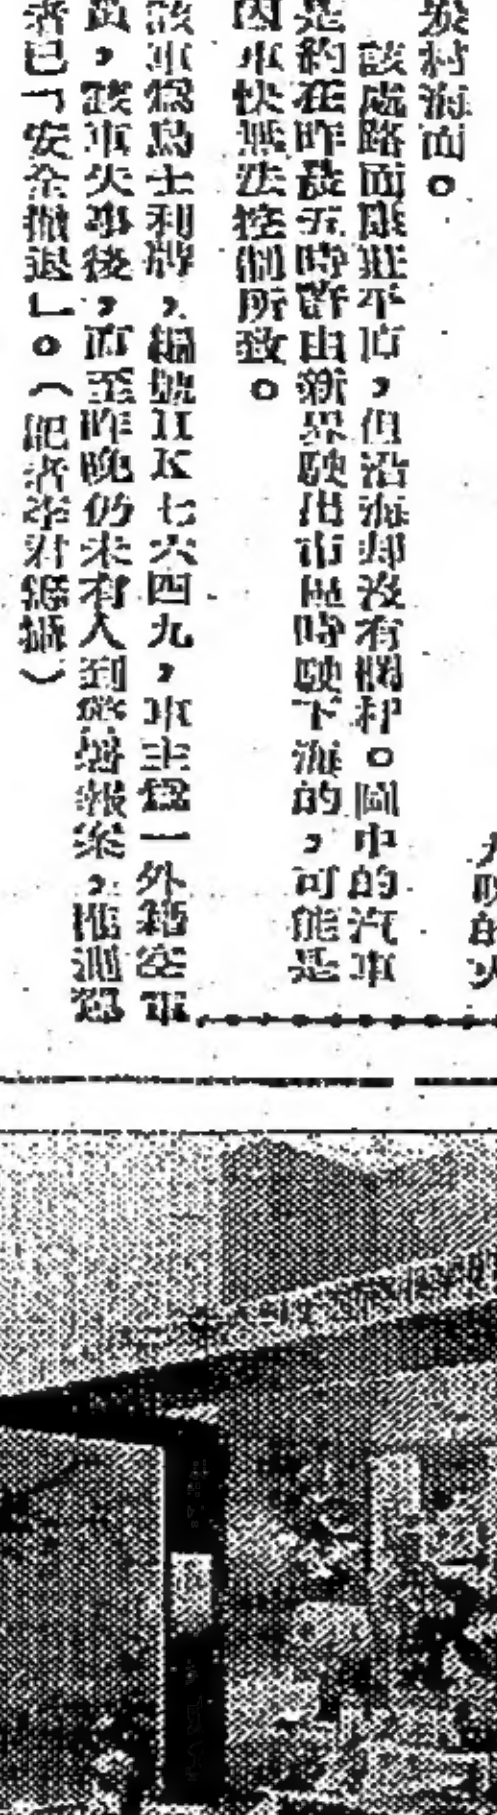 炭村海面。
該處路面雖甚平直，但沿海却沒有欄杆。圖中的汽車
是約在昨晨五時許由新界駛出市區時駛下海的，可能是
因車快無法控制所致。
該車爲烏士利牌，編號HK七六四九，車主爲一外籍空軍
員，該車失事後，直至昨晚仍未有人到警署報案，推測駕
者已「安全撤退」。（記者李君攝）
的火